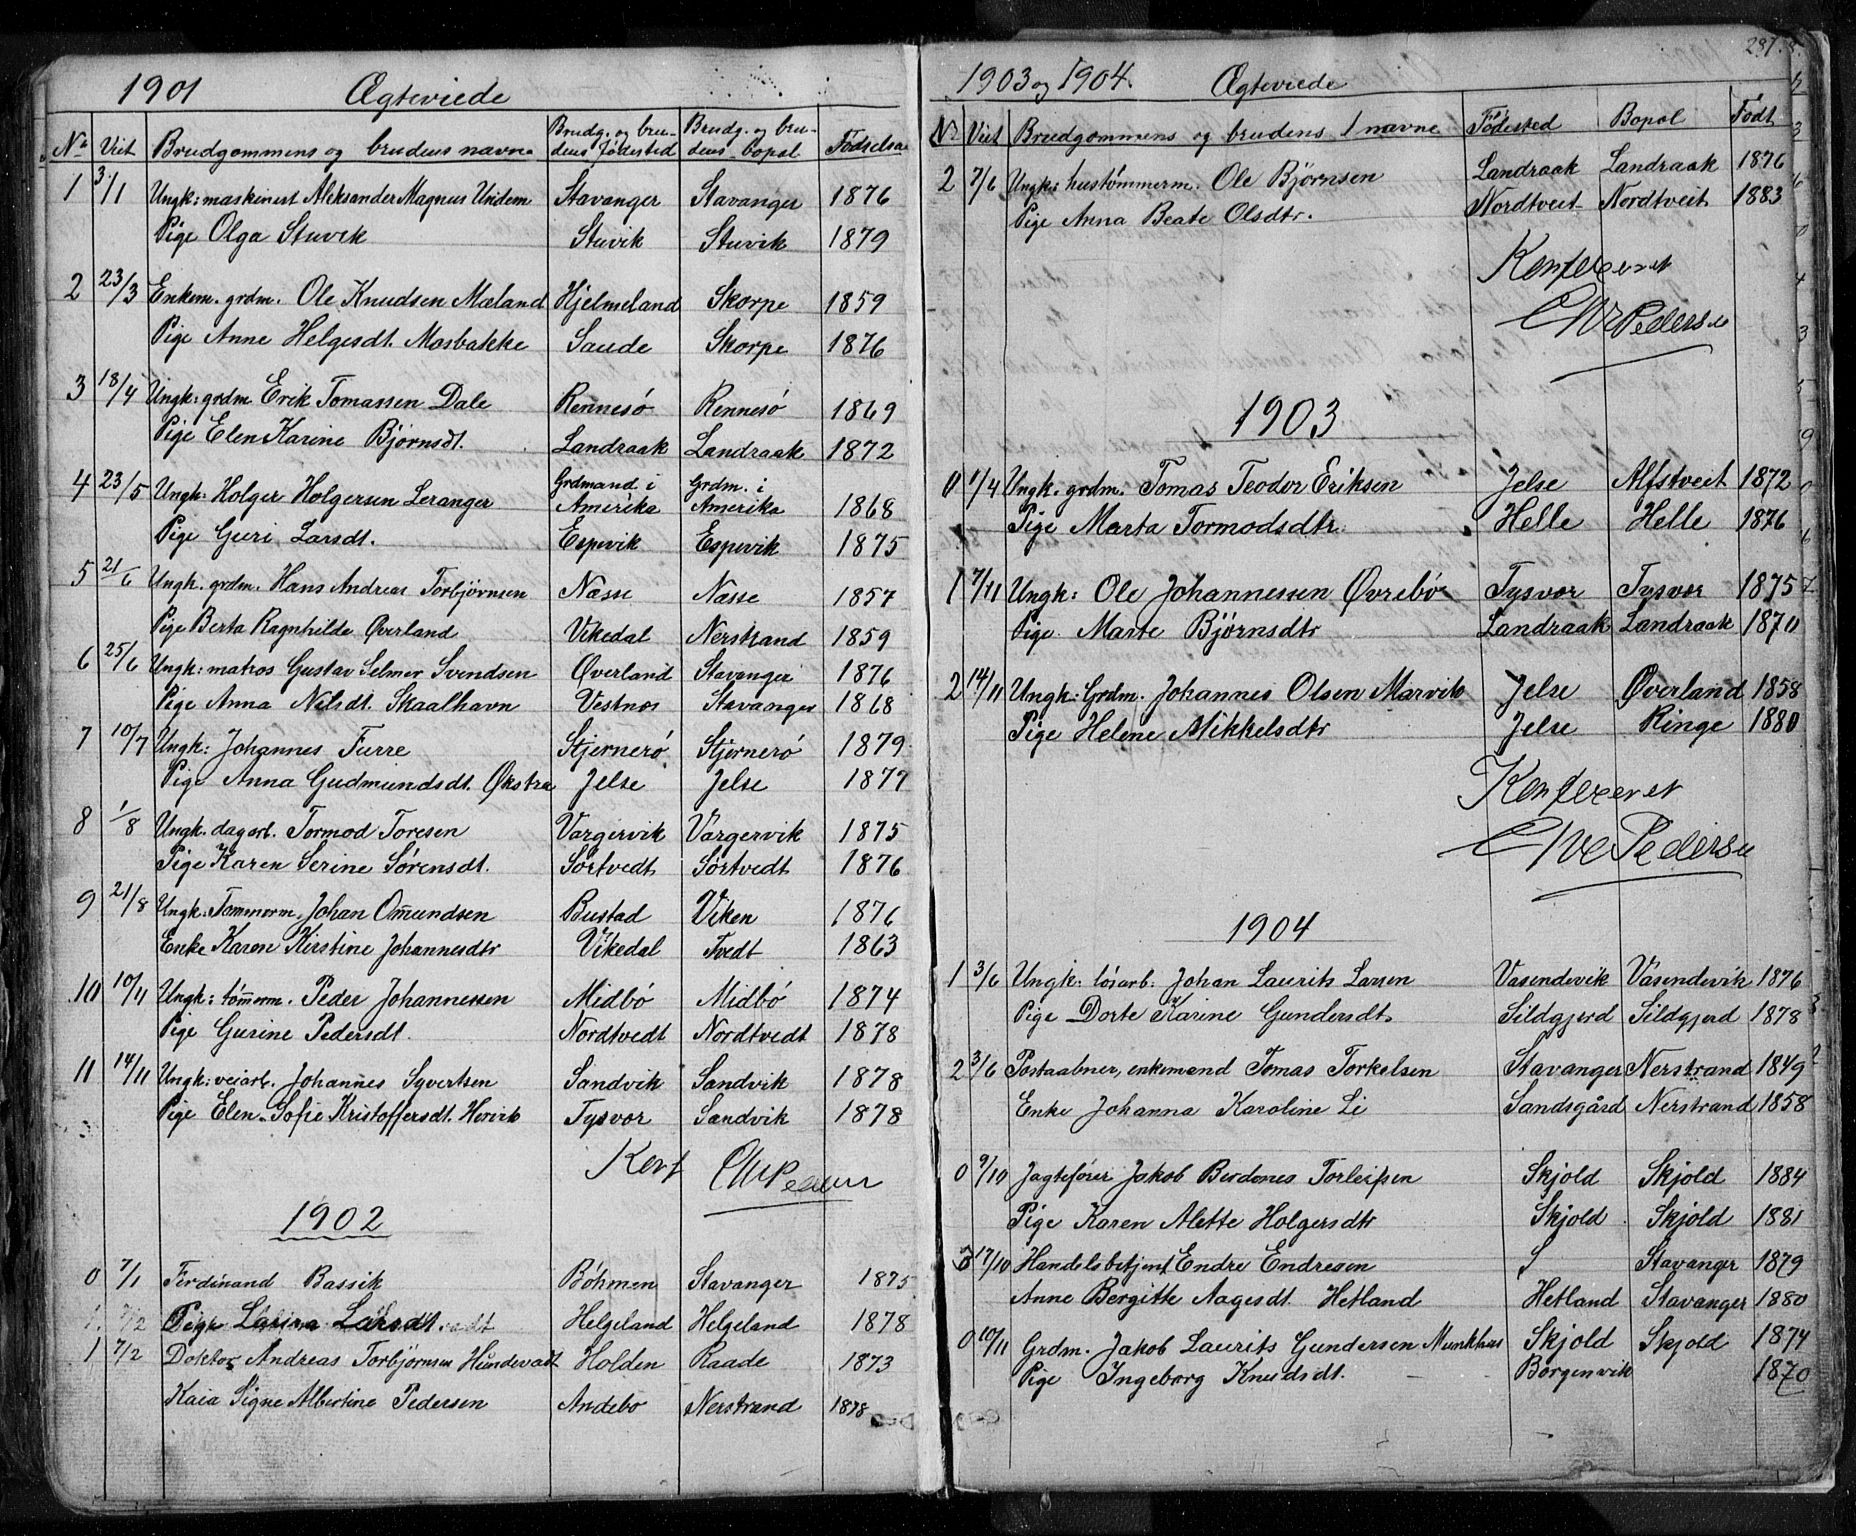 1901 Ægteviede
No Viet Brudgommens og brudens navne Brudg. og bru- Brudg. og bru- Fødselsaa
dens fødested dens bopæl
1 3/1 Ungk: maskinist Aleksander Magnus Unidem Stavanger Stavanger 1876
Pige Olga Stuvik Stuvik Stuvik 1879
2 23/3 Enkem. grdm. Ole Knudsen Mæland Hjelmeland Skorpe 1859
Pige Anne Helgesdt. Mosbakke Saude Skorpe 1876
3 18/4 Ungk: grdm. Erik Tomassen Dale Rennesö Rennesö 1869
Pige Elen Karine Bjørnsdt. Landraak Landraak 1872
4 23/5 Ungk: Holger Holgersen Leranger Grdmand i Amerika Grdm. i Amerika 1868
Pige Guri Larsdt. Espevik Espevik 1875
5 21/6 Ungk. grdm. Hans Andreas Torbjørnsen Næsse Næsse 1857
Pige Berta Ragnhilde Øverland Vikedal Nerstrand 1859
6 25/6 Ungk: matros Gustav Selmer Svendsen Øverland Stavanger 1876
Pige Anna Nilsdt. Skaalhavn Vestnes Stavanger 1868
7 10/7 Ungk: Johannes Furre Stjernerö Stjernerö 1879
Pige Anna Gudmundsdt. Økstra Jelse Jelse 1879
8 1/8 Ungk. dagarb. Tormod Toresen Vargervik Vargervik 1875
Pige Karen Serine Sørensdt. Sörtvedt Sörtvedt 1876
9 21/8 Ungk: Tømmerm. Johan Omundsen Bustad Viken 1876
Enke Karen Kirstine Johannesdtr Vikedal Tvedt 1863
10 10/11 Ungk: tömerm. Peder Johannessen Midbö Midbö 1874
Pige Gurine Pedersdt. Nordtvedt Nordtvedt 1878
11 14/11 Ungk: veiarb. Johannes Syvertsen Sandvik Sandvik 1878
Pige Elen Sofie Kristoffersdt. Hervik Tysvær Sandvik 1878
Konf CMPedersen
1902
0 7/1 Ferdinand Bassik Böhmen Stavanger 1875
1 7/2 Pige Larina Larsdt. Helgeland Helgeland 1878
1 7/2 Doktor Andreas Torbjørnsen Hundevadt Holden Raade 1873
Kaia Signe Albertine Pedersen Andebo Nerstrand 1878
237.
1903 og 1904. Ægteviede
No Viet Brudgommens og brudens navne Fødested Bopæl Født
2 7/6 Ungk: hustömmerm. Ole Bjørnsen Landraak Landraak 1876
Pige Anna Beate Olsdtr. Nordtveit Nordtveit 1883
Konfereret
CMPedersen
1903
0 1/4 Ungk. grdm. Tomas Teodor Eriksen Jelse Alfstveit 1872
Pige Marta Tormodsdtr. Helle Helle 1876
1 7/11 Ungk: Ole Johannessen Øvrebø Tysvær Tysvær 1875
Pige Marte Bjørnsdtr Landraak Landraak 1870
2 14/11 Ungk: Grdm. Johannes Olsen Marvik Jelse Øverland 1858
Pige Helene Mikkelsdtr Jelse Ringe 1880
Konfereret
CMPedersen
1904
1 3/6 Ungk: lösarb: Johan Laurits Larsen Vasendevik Vasendevik 1876
Pige Dorte Karine Gundersdt. Sildgjerd Sildgjerd 1878
2 3/6 Postaabner, enkemand Tomas Torkelsen Stavanger Nerstrand 1849
Enke Johanna Karoline Li Sandsgård Nerstrand 1858
0 9/10 Jagtefører Jakob Berdenes Torleifsen Skjold Skjold 1884
Pige Karen Alette Holgersdtr Skjold Skjold 1881
3 17/10 Handelsbetjent Endre Endresen S Stavanger 1879
Anne Bergitte Aagesdt. Hetland Hetland Stavanger 1880
0 10/11 Grdm. Jakob Laurits Gundersen Munkhus Skjold Skjold 1874
Pige Ingeborg Knudsdt. Borgenvik 1870